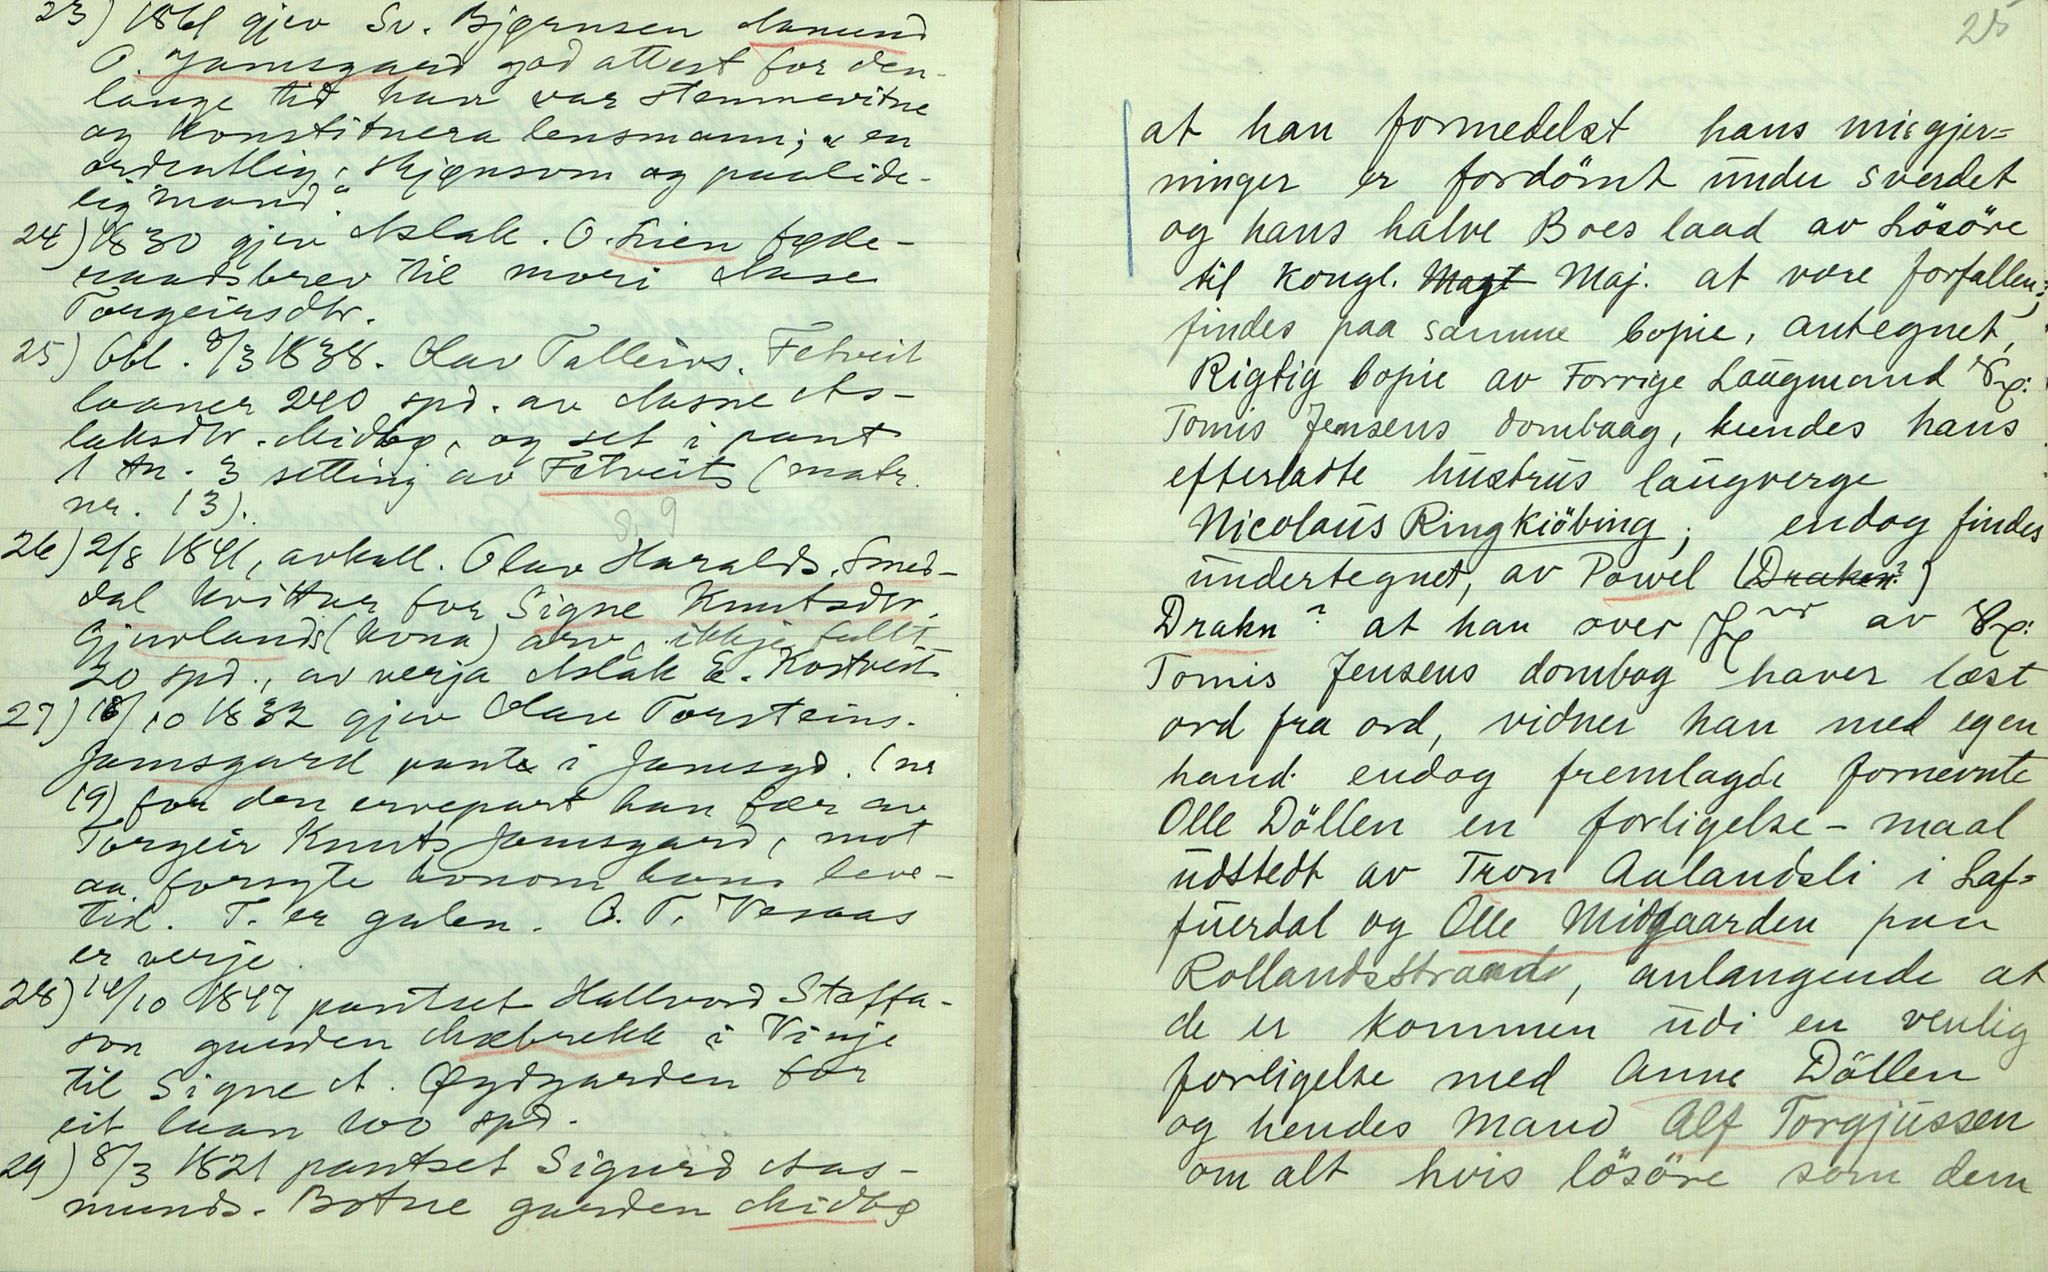 23) 1861 gjev Sv. Bjørnsen Aamund
O. Jamsgard god attest for den
lange tid han var stemnevitne
og konstituera lensmann; "en
ordentlig, skjønsom og paalide-
lig mand".
24) 1830 gjev Aslak O. Lien føde-
raadsbrev til mori Aase
Torgeirsdtr.
25) Obl. 8/3 1838. Olav Talleivs. Fetveit
laaner 240 spd. av Aasne As-
laksdtr. Midbø, og set i pant
1 tn. 3 setting av Fetveit (matr.
nr. 13).
S. 9
26) 2/8 1841, avkall. Olav Haralds. Smed-
dal kvitter for Signe Knutsdtr.
Gjuvlands (kona) arv, ikkje fullt
20 spd., av verja Aslak E. Kostveit
27) 18/10 1832 gjev Olav Torsteins.
Jamsgard pant i Jamsgd. (nr
19) for den arvepart han fær av
Torgeir Knuts. Jamsgard, mot
aa forsyte honom hans leve-
tid. T. er galen. O. T. Vesaas
er verje.
28) 14/10 1847 pantset Hallvord Steffa-
son garden Mæbrekk i Vinje
til Signe A. Øygarden for
eit laan 100 spd.
29) 8/3 1821 pantset Sigurd Aas-
munds. Botne garden Midbø
25
at han formedelst hans misgjer=
ninger er fordömt under sverdet
og hans halve Boes laad av Lösöre
til Kongl. Magt Maj. at være forfallen;
findes paa samme Copie, antegnet,
Rigtig Copie av Forrige Laugmand Sr:
Tomis Jensens dombaag, kundes hans
efterladte hustrus laugverge
Nicolaus Ringkiöbing; endog findes
undertegnet, av Powel (Draken?)
Drakn? at han over av Sr:
Tomis Jensens dombog haver læst
ord fra ord, vidner han med egen
hand. endog fremlagde fornevnte
Olle Döllen en forligelse-maal
udstedt av Tron Aalandsli i Laf=
fuerdal og Olle Midgaarden paa
Rollandsstrand, anlangende at
de er kommen udi en venlig
forligelse med Anne Döllen
og hendes Mand Alf Torgjussen
om alt hvis lösöre som dem